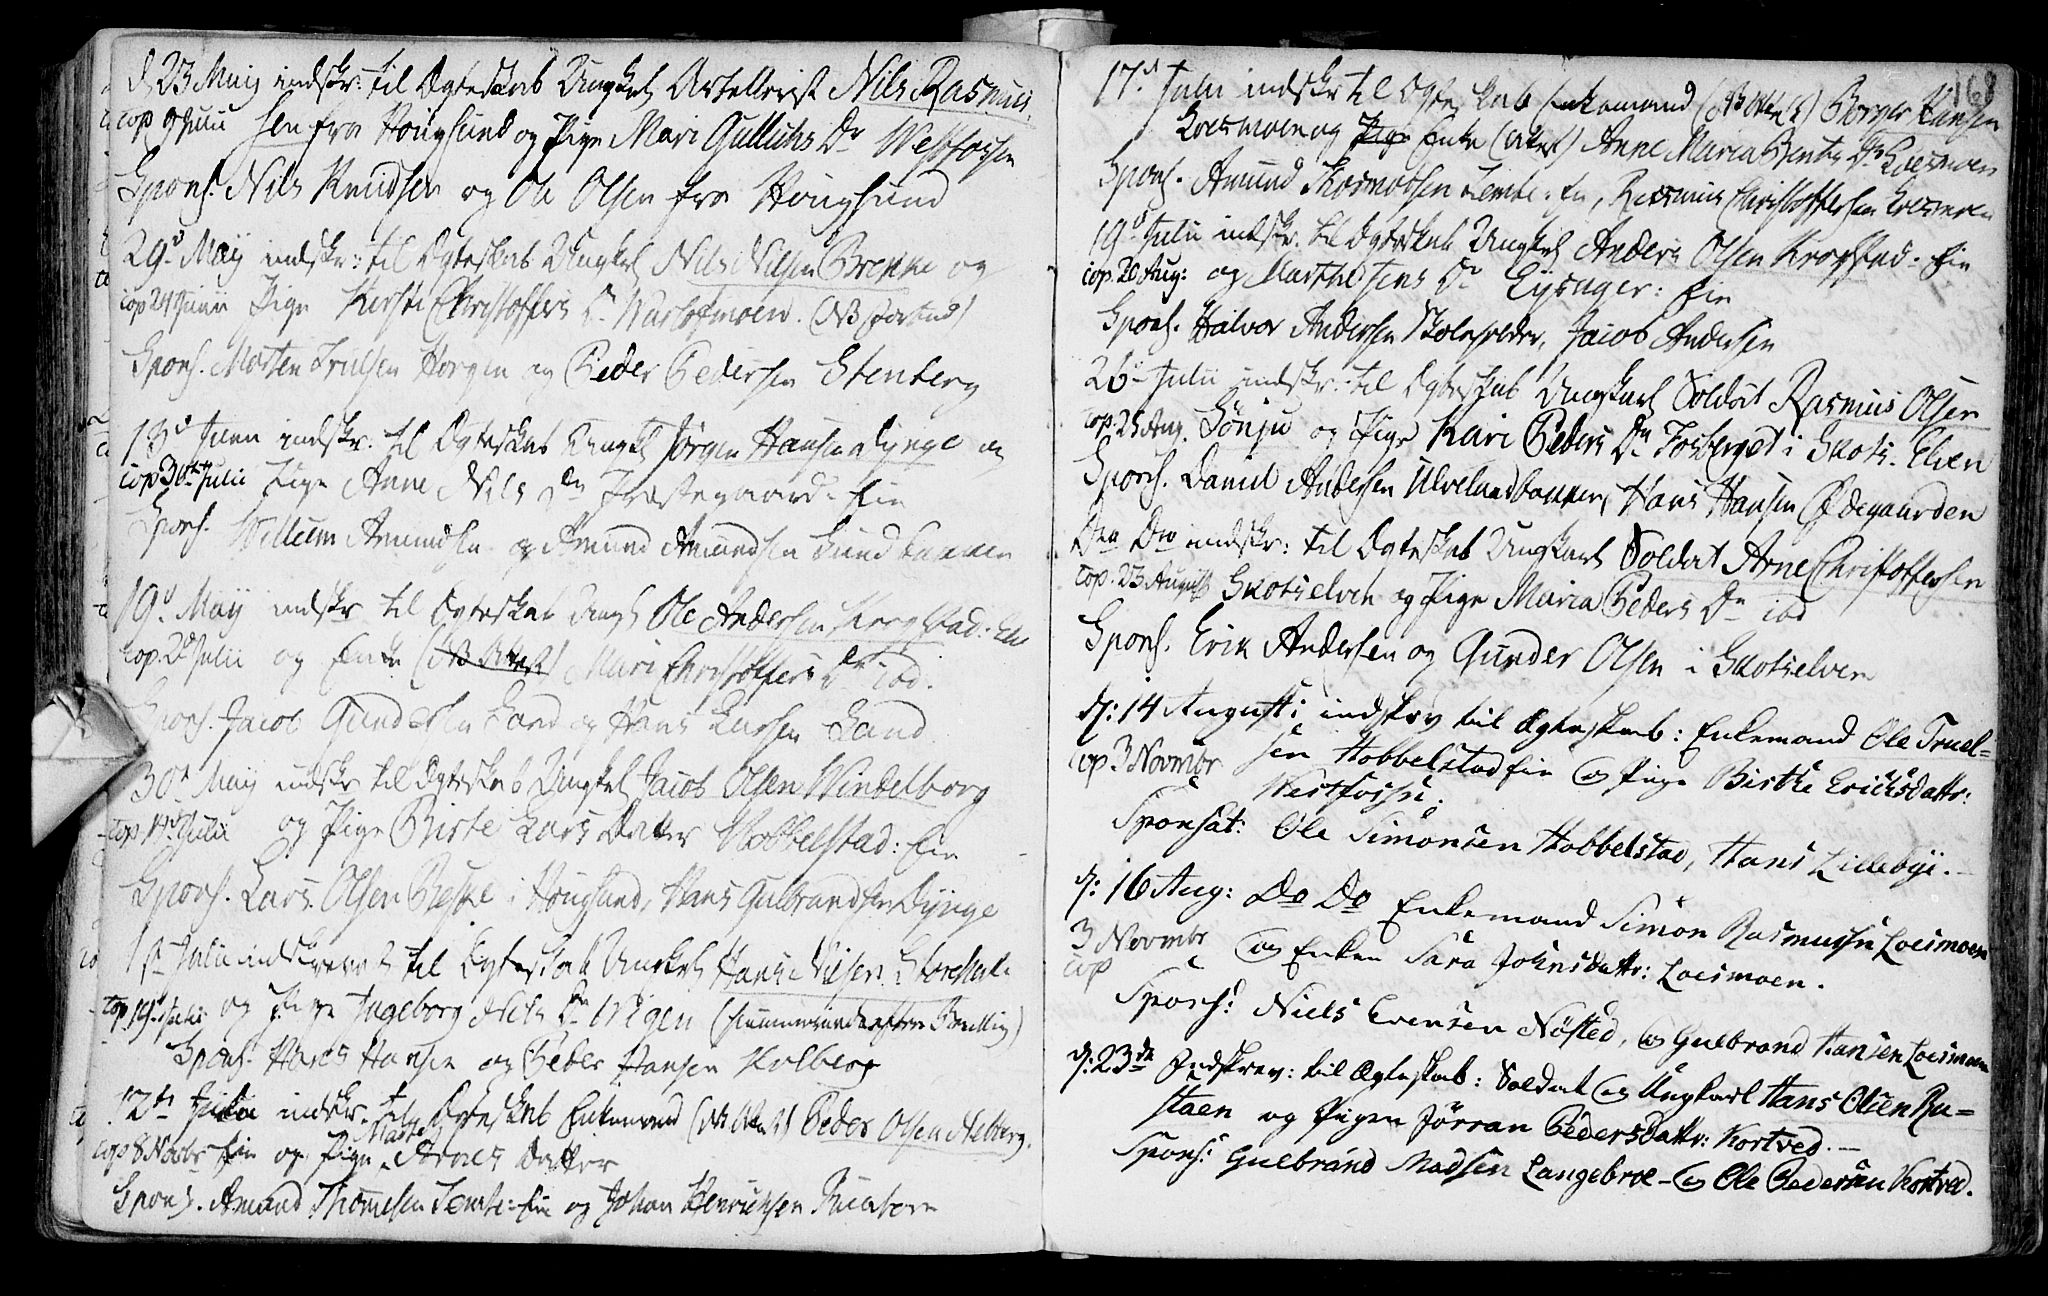 d. 23 Maij indskr: til Ægteskab Ungkarl Artellerist Nils Rasmus
cop 9 Julii sen fra Hougsund og Pige Mari Gullichs Dr Westfossen
Spons. Nils Knudsen og Ole Olsen fra Hougsund
29d Maij indskr: til Ægteskab Ungkarl Nils Nilsen Brekke og
cop 24 Junii Pige Kersti Christoffers Dr (NB forlad)
Spons. Morten Trulsen Horgen og Peder Pedersen Stenberg
18d Juni indskr. til Ægteskab Ungkl Jörgen Hansen Dynge og
cop 30te Julii Pige Anne Nils Dr Præstegaard. Eie
Spons. Willum Amundsen og Amund Amundsen Sundbakken
19d. Maij indskr til Ægteskab Ungk Ole Andersen Krogstad: Eie
cop. 2d Julii og Enke (NB Attest) Mari Christoffers Dr ibd.
Spons. Jacob Gundersen Sand og Hans Larsen Sand
30d Maij indskr til Ægteskab Ungkarl Jacob Olsen Windelborg
cop 14d Julii og Pige Birte Lars Datter Hobbelstad: Eie
Spons. Lars Olsen i Hougsund, Hans Gulbrandsen Dynge
1ste Julii indskrevet til Ægteskab Ungkarl Hans Nilsen
cop 19d. Julii og Pige Ingeborg Nils Dr Wigen
Spons. Hans Hansen og Peder Hansen Holberg
12te Julii indskr. til Ægteskab Enkemand (NB Attest) Peder Olsen Aeberg.
cop 8 Novbr Eie og Pige Marte Arnes Datter
Spons. Amund Thomesen Temte: Eie og Johan Henrichsen
168
17d Julii indskr til Ægteskab Enkemand (NB Attest) Borger Hansen
Loesmoen og Pige Enke (Attest) Anne Maria Bents Dr Loesmoen
Spons. Amund Thormodsen Temte: Eie, Rasmus Christoffersen Loesmoen
19d Julii indskr. til Ægteskab Ungkarl Anders Olsen Krogstad: Eie
cop. 20 Aug: og Marthe Jens Dr Eysager: Eie
Spons. Halvor Andersen Skoleholder, Jacob Andersen
26d Julii indskr. til Ægteskab Ungkarl Soldat Rasmus Olsen
cop. 25 Aug. Sönju og Pige Kari Peders Dr Fosberget i Skots-Elven
Spons. Daniel Andersen Ulvelandbakken, Hans Hansen Ødegaarden
Dto Dto indskr: til Ægteskab Ungkarl Soldat Arne Christoffersen
cop. 23 August Skotselven og Pige Maria Peders Dr ibd
Spons. Erik Andersen og Gunder Olsen i Skotselven
d: 14 Augusti indskrv til Ægteskab: Enkemand Ole Truel=
cop 3 Novmbr sen Hobbelstad Eie og Pige Birthe Erichsdattr:
Westfossen.
Sponsat: Ole Simonsen Hobbelstad, Hans Lillebye.
d: 16 Aug: Do Do Enkemand Simon Rasmussen Loesmoen
3 Novmbr og Enken Sara Johnsdattr: Loesmoen.
cop
Spons: Niels Evensen Nösted, og Gulbrand Hansen Loesmoen
d: 23de Indskrev: til Ægteskab: Soldat og Ungkarl Hans Olsen Ru=
staen og Pigen Jörran Pedersdattr: Kortved.
Spons: Gulbrand Madsen Langebroe - og Ole Pedersen Kortved.